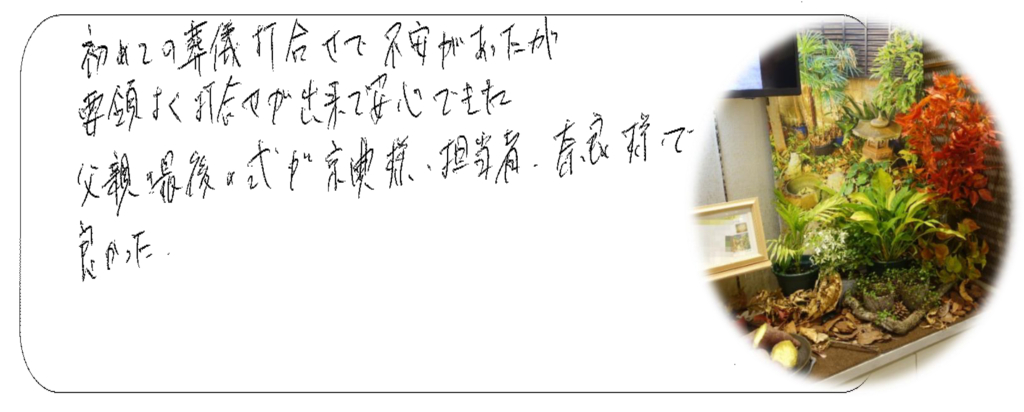 初めての葬儀打合せで不安があったが
要領よく打合せが出来て安心できた
父親の最後の式が京典様、担当者、奈良様で
良かった.